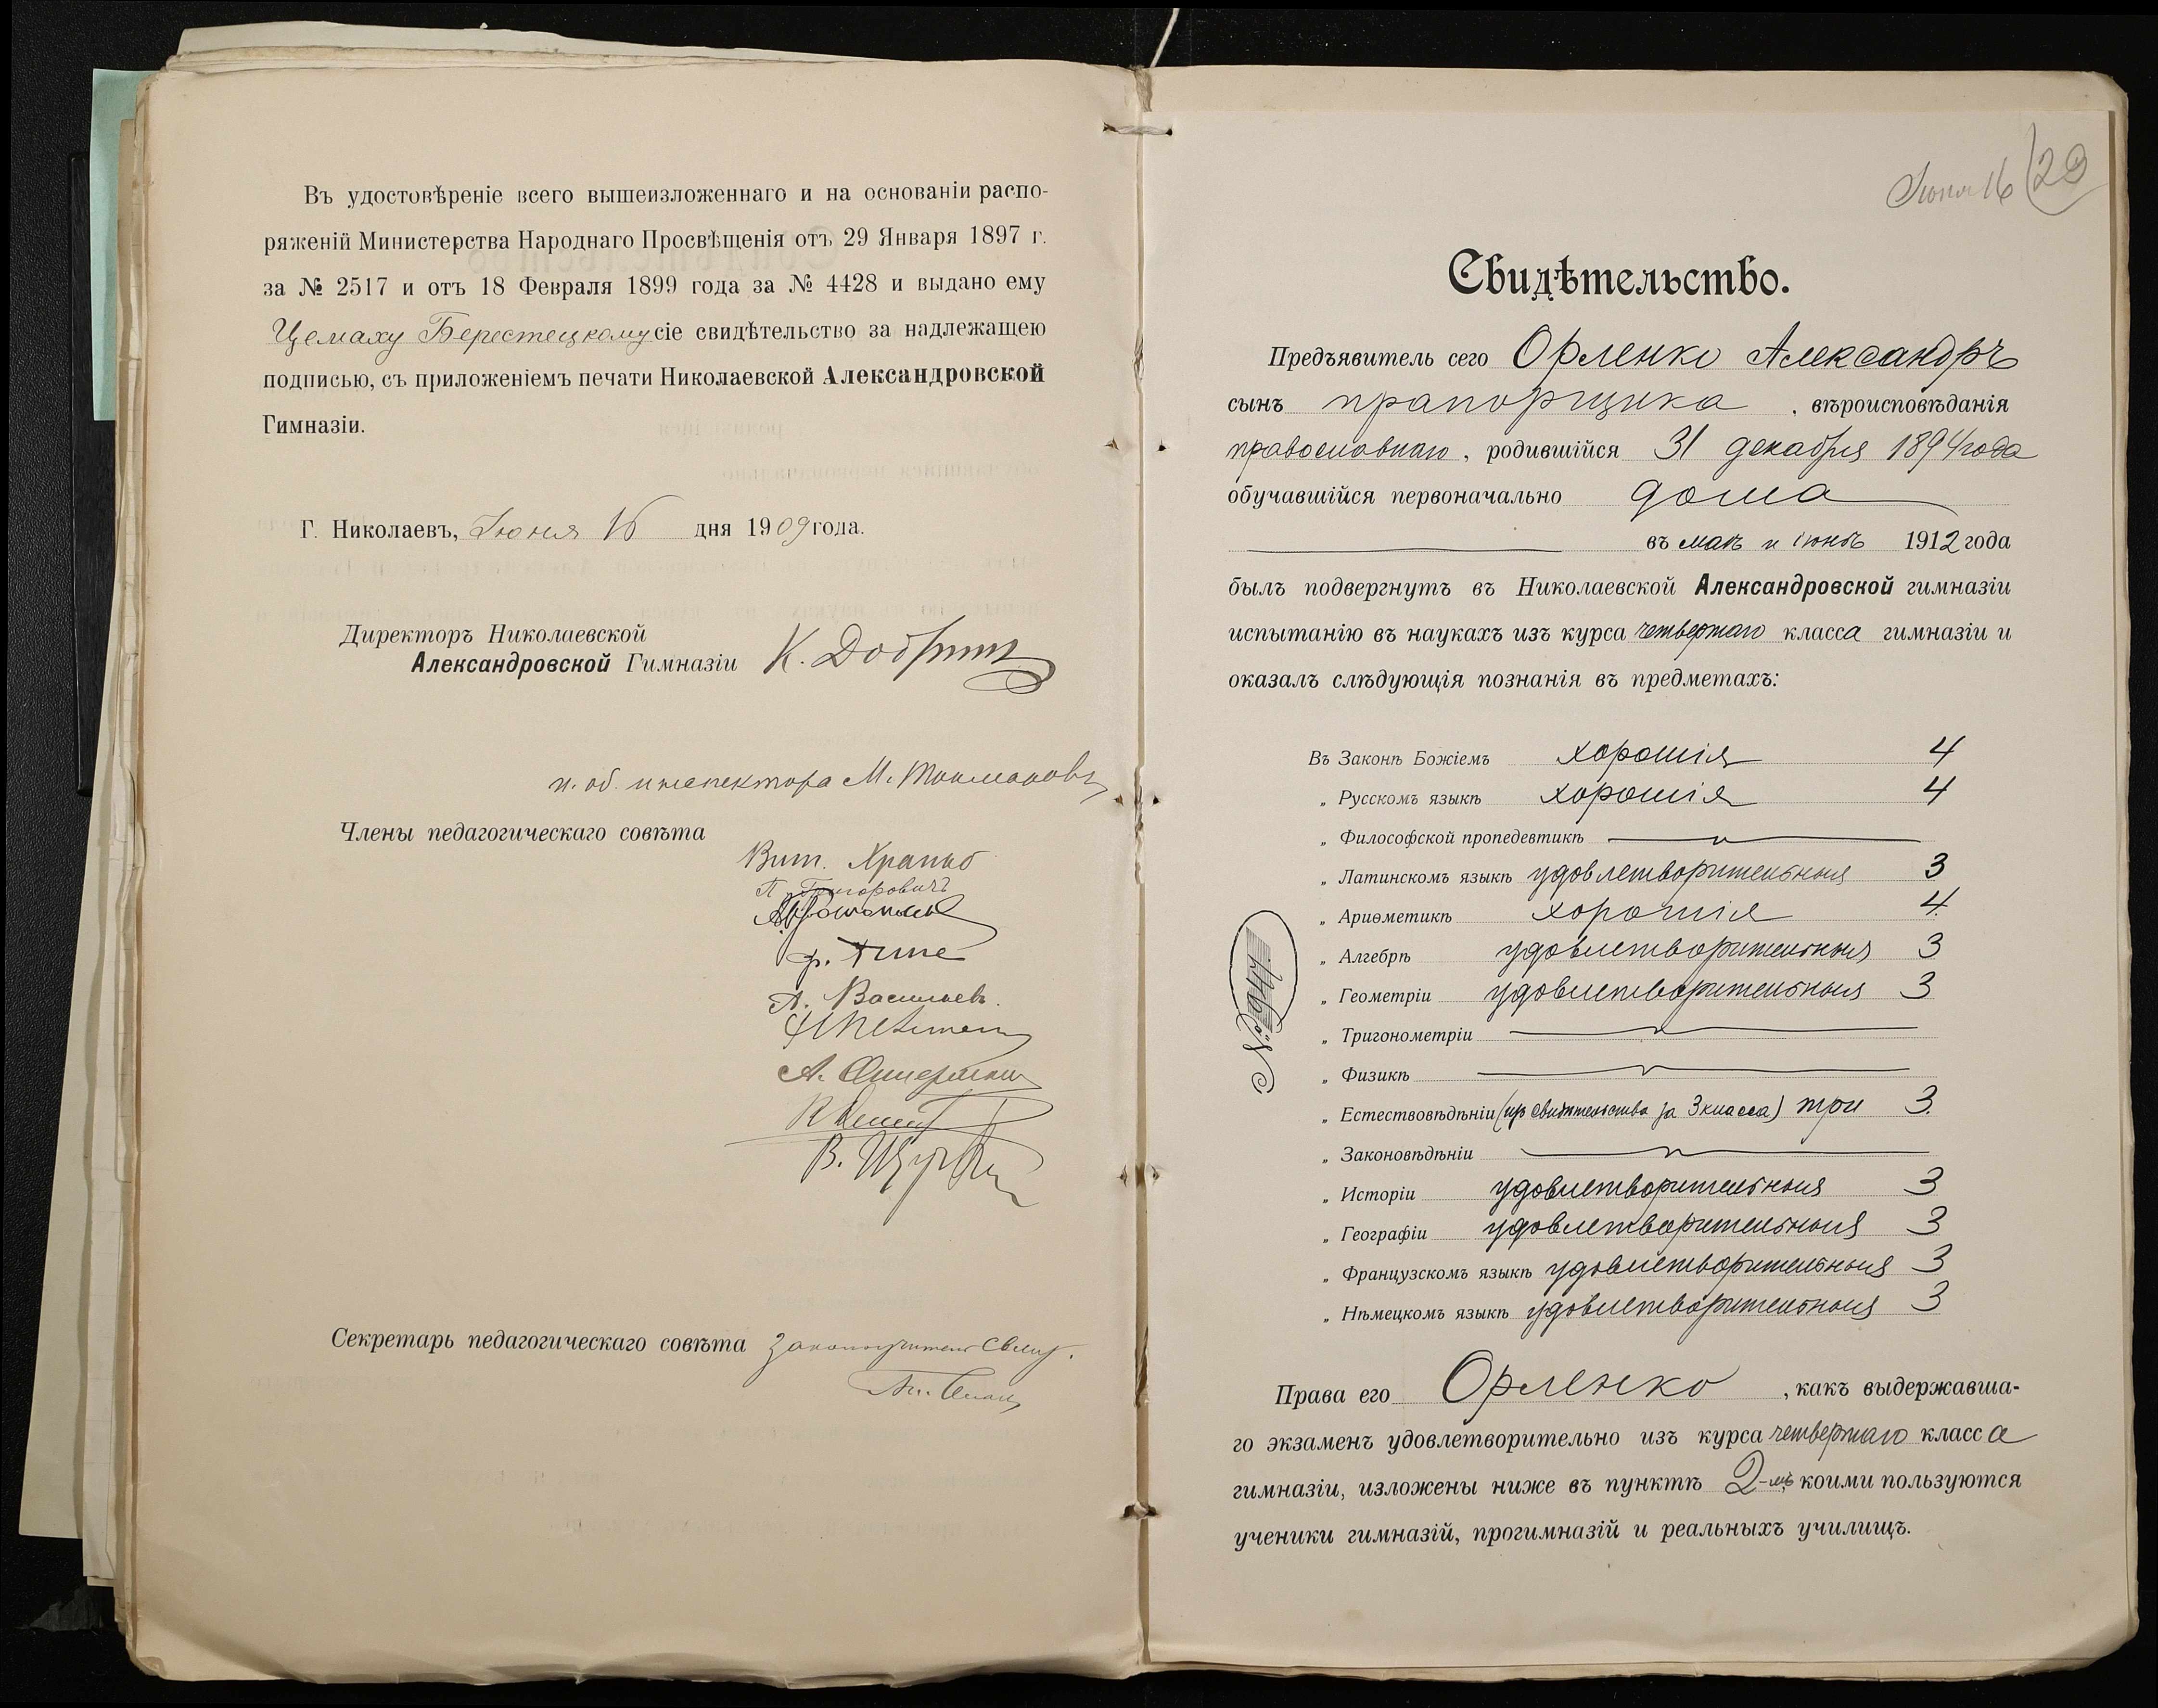 Въ удостовѣреніе всего вышеизложеннаго и на основаніи распо-
ряженій Министерства Народнаго Просвѣщенія отъ 29 Января 1897 г.
за № 2517 и отъ 18 Февраля 1899 года за № 4428 и выдано ему
Цемаху Берестецкому сіе свидѣтельство за надлежащею
подписью, съ приложеніемъ печати Николаевской Александровской
Гимназіи.
Г. Николаевъ, Іюня 16 дня 1909 года.
Директоръ Николаевской
Александровской Гимназіи К. Добрин
и. об. инспектора М.
Члены педагогическаго совѣта
Вит. Храпко
П. Григоровичъ
А. Васильевъ.
Секретарь педагогическаго совѣта законоучитель Свящ.
Іюня 16 29
Свидѣтельство.
Предъявитель сего Орленко Александръ
сынъ прапорщика, вѣроисповѣданія
православнаго, родившійся 31 декабря 1894 года
обучавшійся первоначально дома
въ маѣ и іюнѣ 1912 года
былъ подвергнутъ въ Николаевской Александровской гимназіи
испытанію въ наукахъ изъ курса четвертаго класса гимназіи и
оказалъ слѣдующія познанія въ предметахъ:
Въ Законѣ Божіемъ хорошія 4
„ Русскомъ языкѣ хорошія 4
„ Философской пропедевтикѣ
„ Латинскомъ языкѣ удовлетворительныя 3
„ Ариѳметикѣ хорошія 4.
„ Алгебрѣ удовлетворительныя 3
„ Геометріи удовлетворительныя 3
„ Тригонометріи
„ Физикѣ
„ Естествовѣдѣніи (изъ свидѣтельства за 3 класса) три 3.
„ Законовѣдѣніи
„ Исторіи удовлетворительныя 3
„ Географіи удовлетворительныя 3
„ Французскомъ языкѣ удовлетворительныя 3
„ Нѣмецкомъ языкѣ удовлетворительныя 3
№ 947.
Права его Орленко, какъ выдержавша-
го экзаменъ удовлетворительно изъ курса четвертаго класса
гимназіи, изложены ниже въ пунктѣ 2-мъ, коими пользуются
ученики гимназій, прогимназій и реальныхъ училищъ.